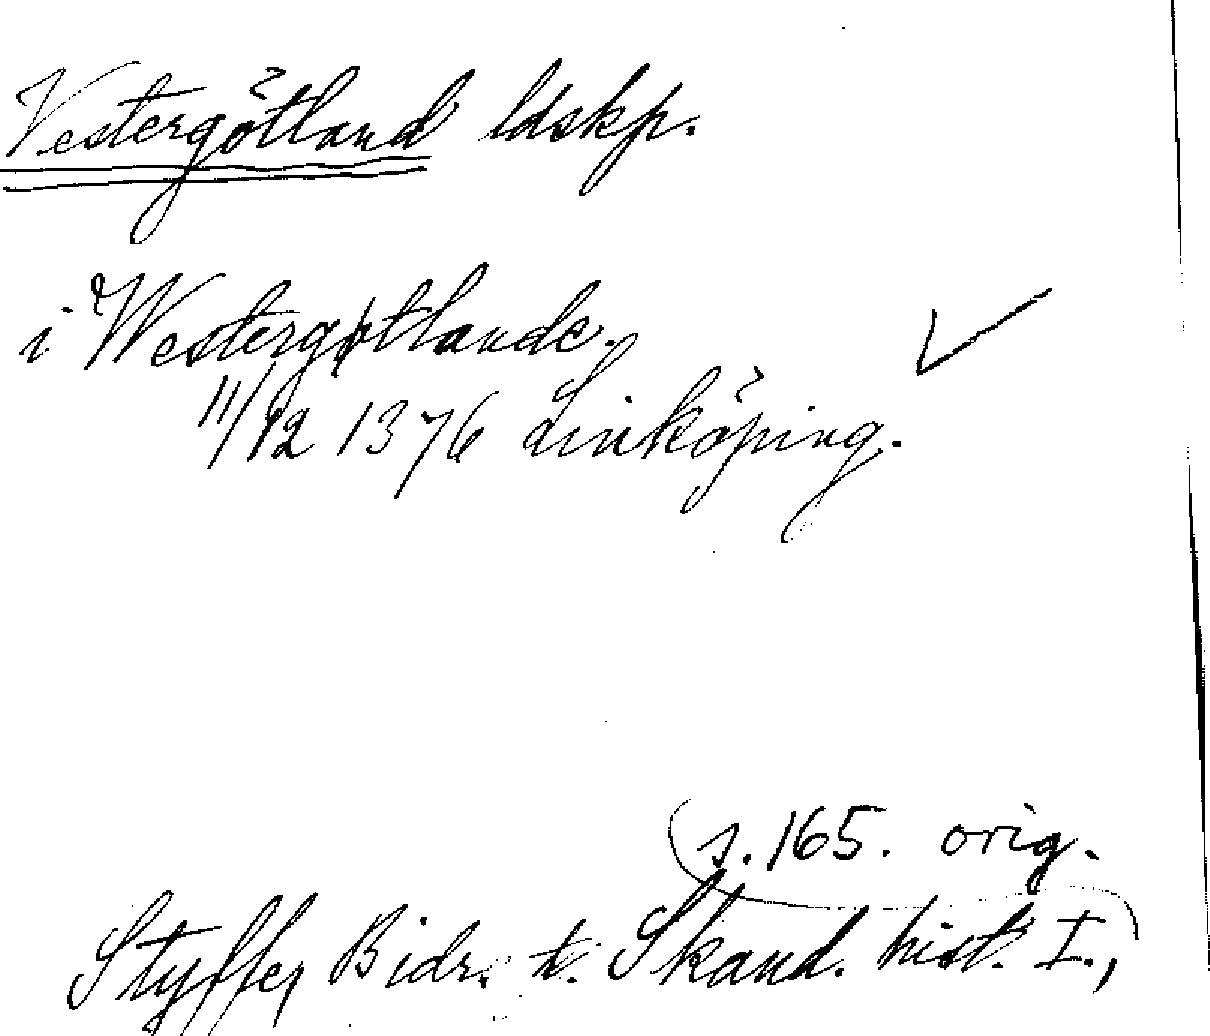 Vestergötland ldskp.
i Westergøtlande.
11/12 1376 Linköping.
s. 165. orig.
Styffe, Bidr. t. Skand. hist. I.,